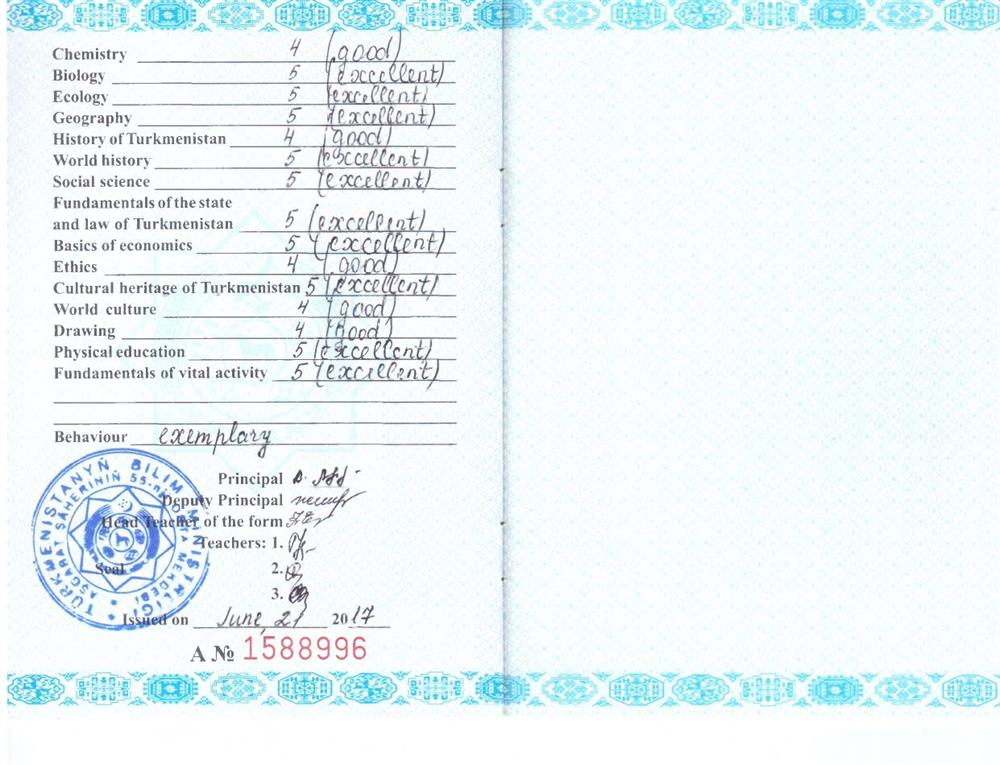 Chemistry 4 (good)
Biology 5 (excellent)
Ecology 5 (excellent)
Geography 5 (excellent)
History of Turkmenistan 4 (good)
World history 5 (excellent)
Social science 5 (excellent)
Fundamentals of the state
and law of Turkmenistan 5 (excellent)
Basics of economics 5 (excellent)
Ethics 4 (good)
Cultural heritage of Turkmenistan 5 (excellent)
World culture 4 (good)
Drawing 4 (good)
Physical education 5 (excellent)
Fundamentals of vital activity 5 (excellent)
Behaviour exemplary
Principal
Deputy Principal
Head Teacher of the form
Teachers: 1.
2.
3.
Seal
TÜRKMENISTANYŇ BILIM MINISTRLIGI
AŞGABAT ŞÄHERINIŇ 55-nji ORTA MEKDEBI
Issued on June, 21 2017
A № 1588996